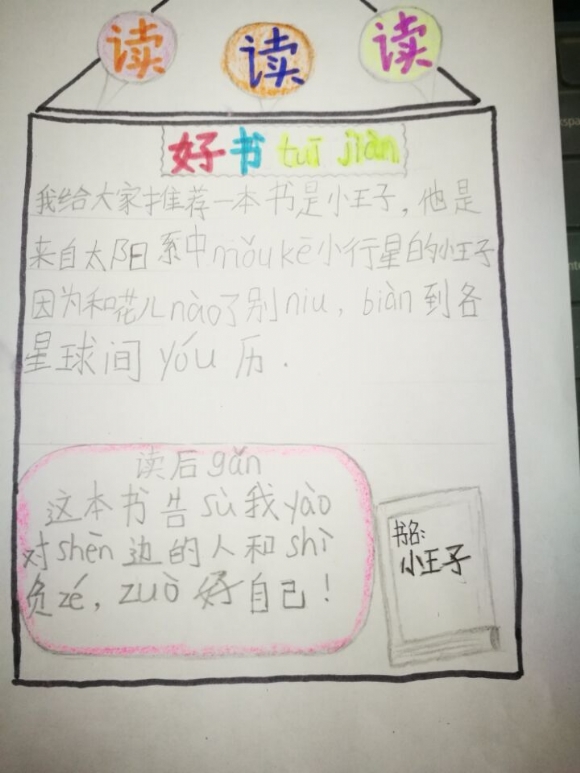 读 读 读
好书tuī jiàn
我给大家推荐一本书是小王子，他是
来自太阳系中mǒu kē小行星的小王子
因为和花儿nào了别niu，biàn到各
星球间yóu历.
读后gǎn
这本书告sù我yào
对shēn边的人和shì
负zé，zuò好自己！
书名:
小王子